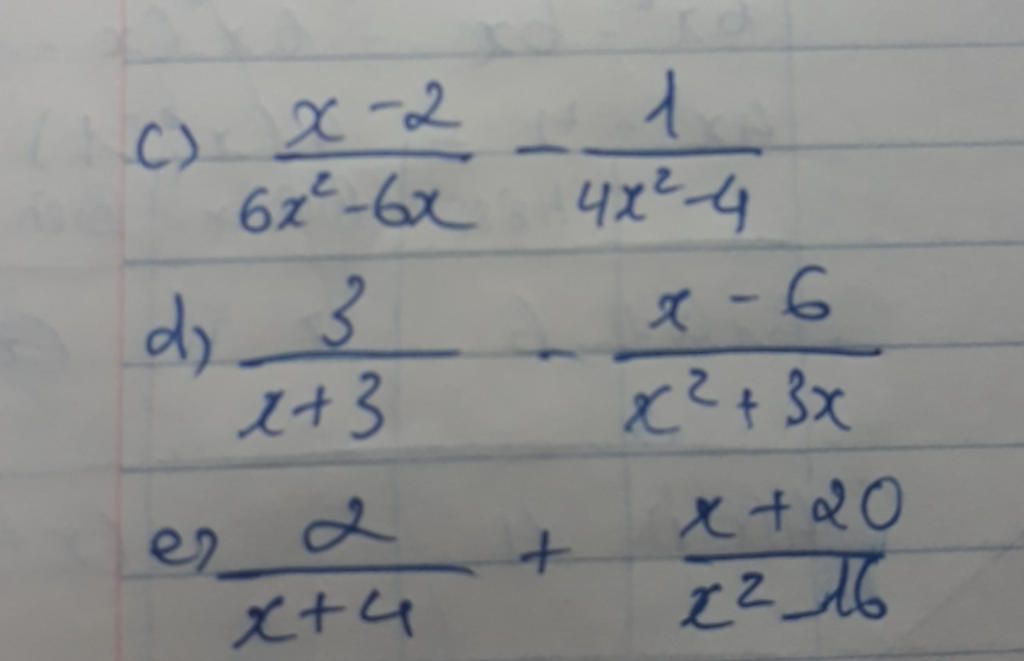 c) \frac{x-2}{6x^2-6x} - \frac{1}{4x^2-4}
d) \frac{3}{x+3} - \frac{x-6}{x^2+3x}
e) \frac{2}{x+4} + \frac{x+20}{x^2-16}